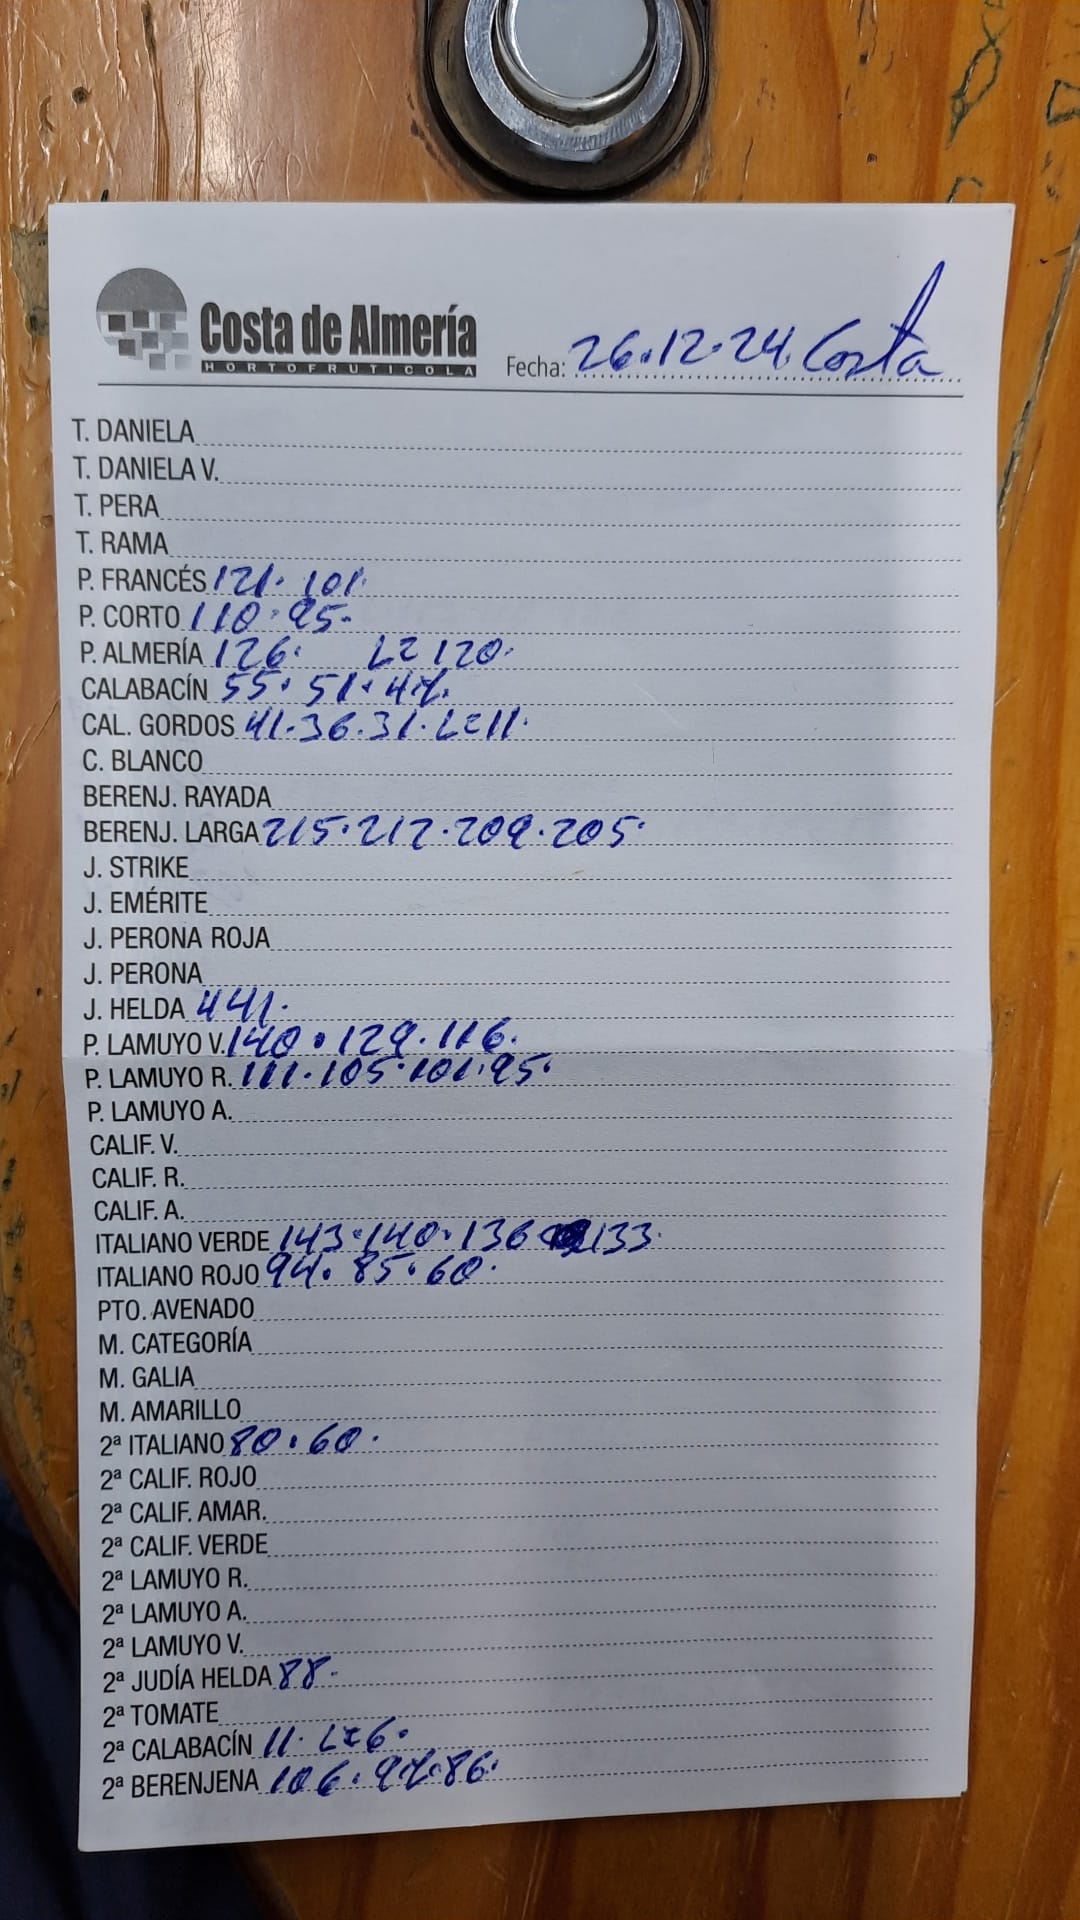 Costa de Almería
HORTOFRUTICOLA
Fecha: 26.12.24. Costa
T. DANIELA
T. DANIELA V.
T. PERA
T. RAMA
P. FRANCÉS 121. 101.
P. CORTO 110.95-
P. ALMERÍA 126. L=120.
CALABACÍN 55. 51. 47.
CAL. GORDOS 41.36.31. L=11.
C. BLANCO
BERENJ. RAYADA
BERENJ. LARGA 215.212.209.205.
J. STRIKE
J. EMÉRITE
J. PERONA ROJA
J. PERONA
J. HELDA 441.
P. LAMUYO V. 140.129.116.
P. LAMUYO R. 111.105.101.95.
P. LAMUYO A.
CALIF. V.
CALIF. R.
CALIF. A.
ITALIANO VERDE 143.140.136 133.
ITALIANO ROJO 94. 85.60.
PTO. AVENADO
M. CATEGORÍA
M. GALIA
M. AMARILLO
2ª ITALIANO 80.60.
2ª CALIF. ROJO
2ª CALIF. AMAR.
2ª CALIF. VERDE
2ª LAMUYO R.
2ª LAMUYO A.
2ª LAMUYO V.
2ª JUDÍA HELDA 88.
2ª TOMATE
2ª CALABACÍN 11. L=6.
2ª BERENJENA 106.97.86.